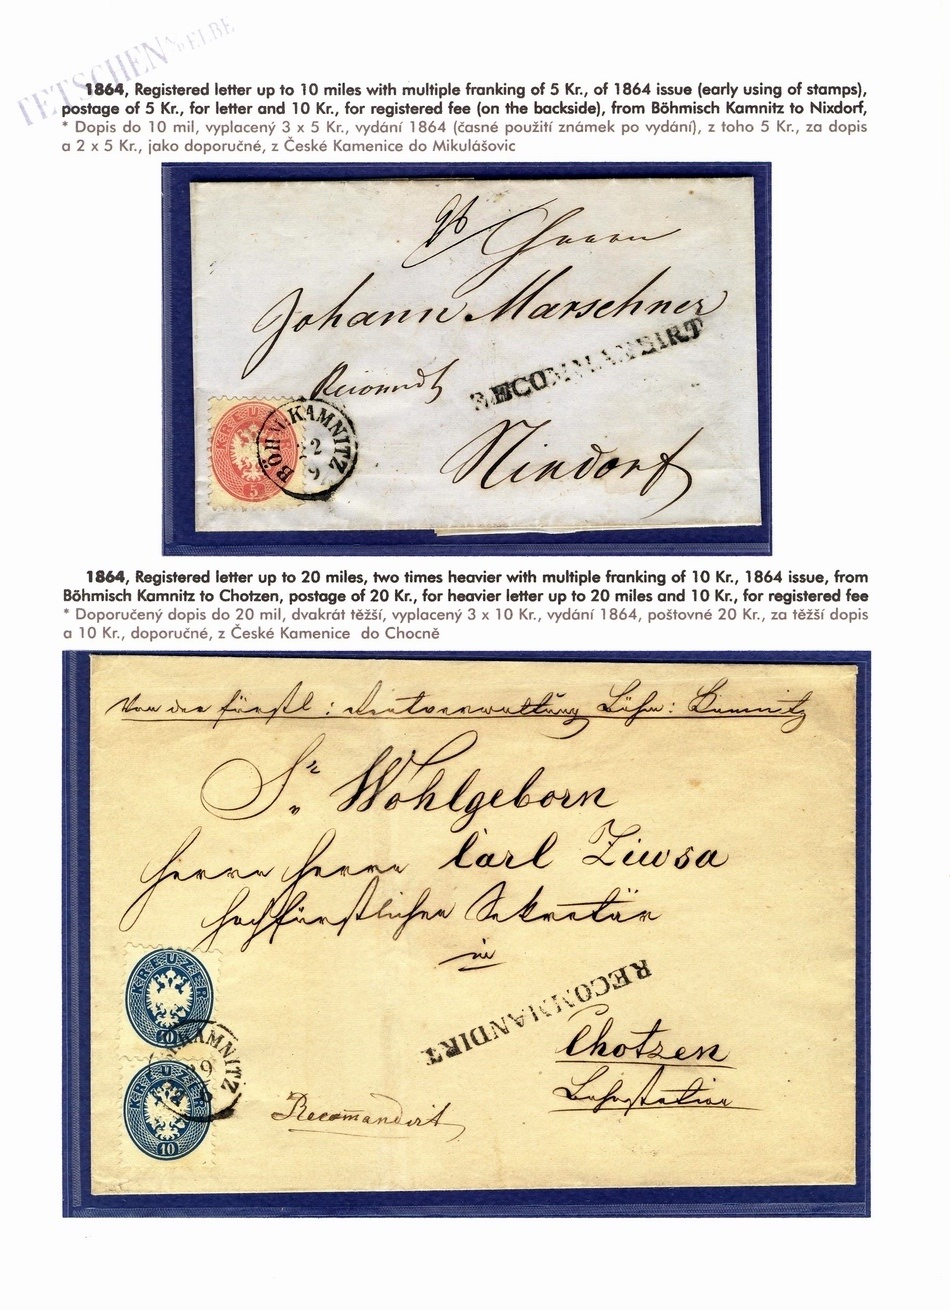 TETSCHEN A/D ELBE
1864, Registered letter up to 10 miles with multiple franking of 5 Kr., of 1864 issue (early using of stamps),
postage of 5 Kr., for letter and 10 Kr., for registered fee (on the backside), from Böhmisch Kamnitz to Nixdorf,
* Dopis do 10 mil, vyplacený 3 x 5 Kr., vydání 1864 (časné použití známek po vydání), z toho 5 Kr., za dopis
a 2 x 5 Kr., jako doporučné, z České Kamenice do Mikulášovic
Herrn
Johann Marschner
RECOMMANDIRT
Recomdt
KREUZER
5
BÖHM. KAMNITZ
Nixdorf
1864, Registered letter up to 20 miles, two times heavier with multiple franking of 10 Kr., 1864 issue, from
Böhmisch Kamnitz to Chotzen, postage of 20 Kr., for heavier letter up to 20 miles and 10 Kr., for registered fee
* Doporučený dopis do 20 mil, dvakrát těžší, vyplacený 3 x 10 Kr., vydání 1864, poštovné 20 Kr., za těžší dopis
a 10 Kr., doporučné, z České Kamenice do Chocně
Von der fürstl: Rentverwaltung Böhm: Kamnitz
Sr. Wohlgeborn
Herrn Herrn Carl Ziwsa
hochfürstlicher Sekretär
in
RECOMMANDIRT
KREUZER
10
KAMNITZ
Chotzen
Bahnstation
KREUZER
10
Recomandirt